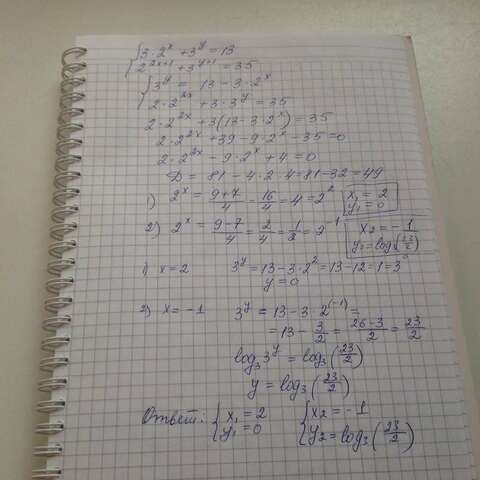 {3·2^x + 3^y = 13
2^(2x+1) + 3^(y+1) = 35
{3^y = 13 - 3·2^x
2·2^(2x) + 3·3^y = 35
2·2^(2x) + 3(13 - 3·2^x) = 35
2·2^(2x) + 39 - 9·2^x - 35 = 0
2·2^(2x) - 9·2^x + 4 = 0
D = 81 - 4·2·4 = 81 - 32 = 49
1) 2^x = (9+7)/4 = 16/4 = 4 = 2^2 x₁ = 2 y₁ = 0
2) 2^x = (9-7)/4 = 2/4 = 1/2 = 2^(-1) x₂ = -1 y₂ = log₃(23/2)
1) x = 2 3^y = 13 - 3·2^2 = 13 - 12 = 1 = 3^0
y = 0
2) x = -1 3^y = 13 - 3·2^(-1) =
= 13 - 3/2 = (26-3)/2 = 23/2
log₃ 3^y = log₃(23/2)
y = log₃(23/2)
Ответ: {x₁ = 2 y₁ = 0 {x₂ = -1 y₂ = log₃(23/2)